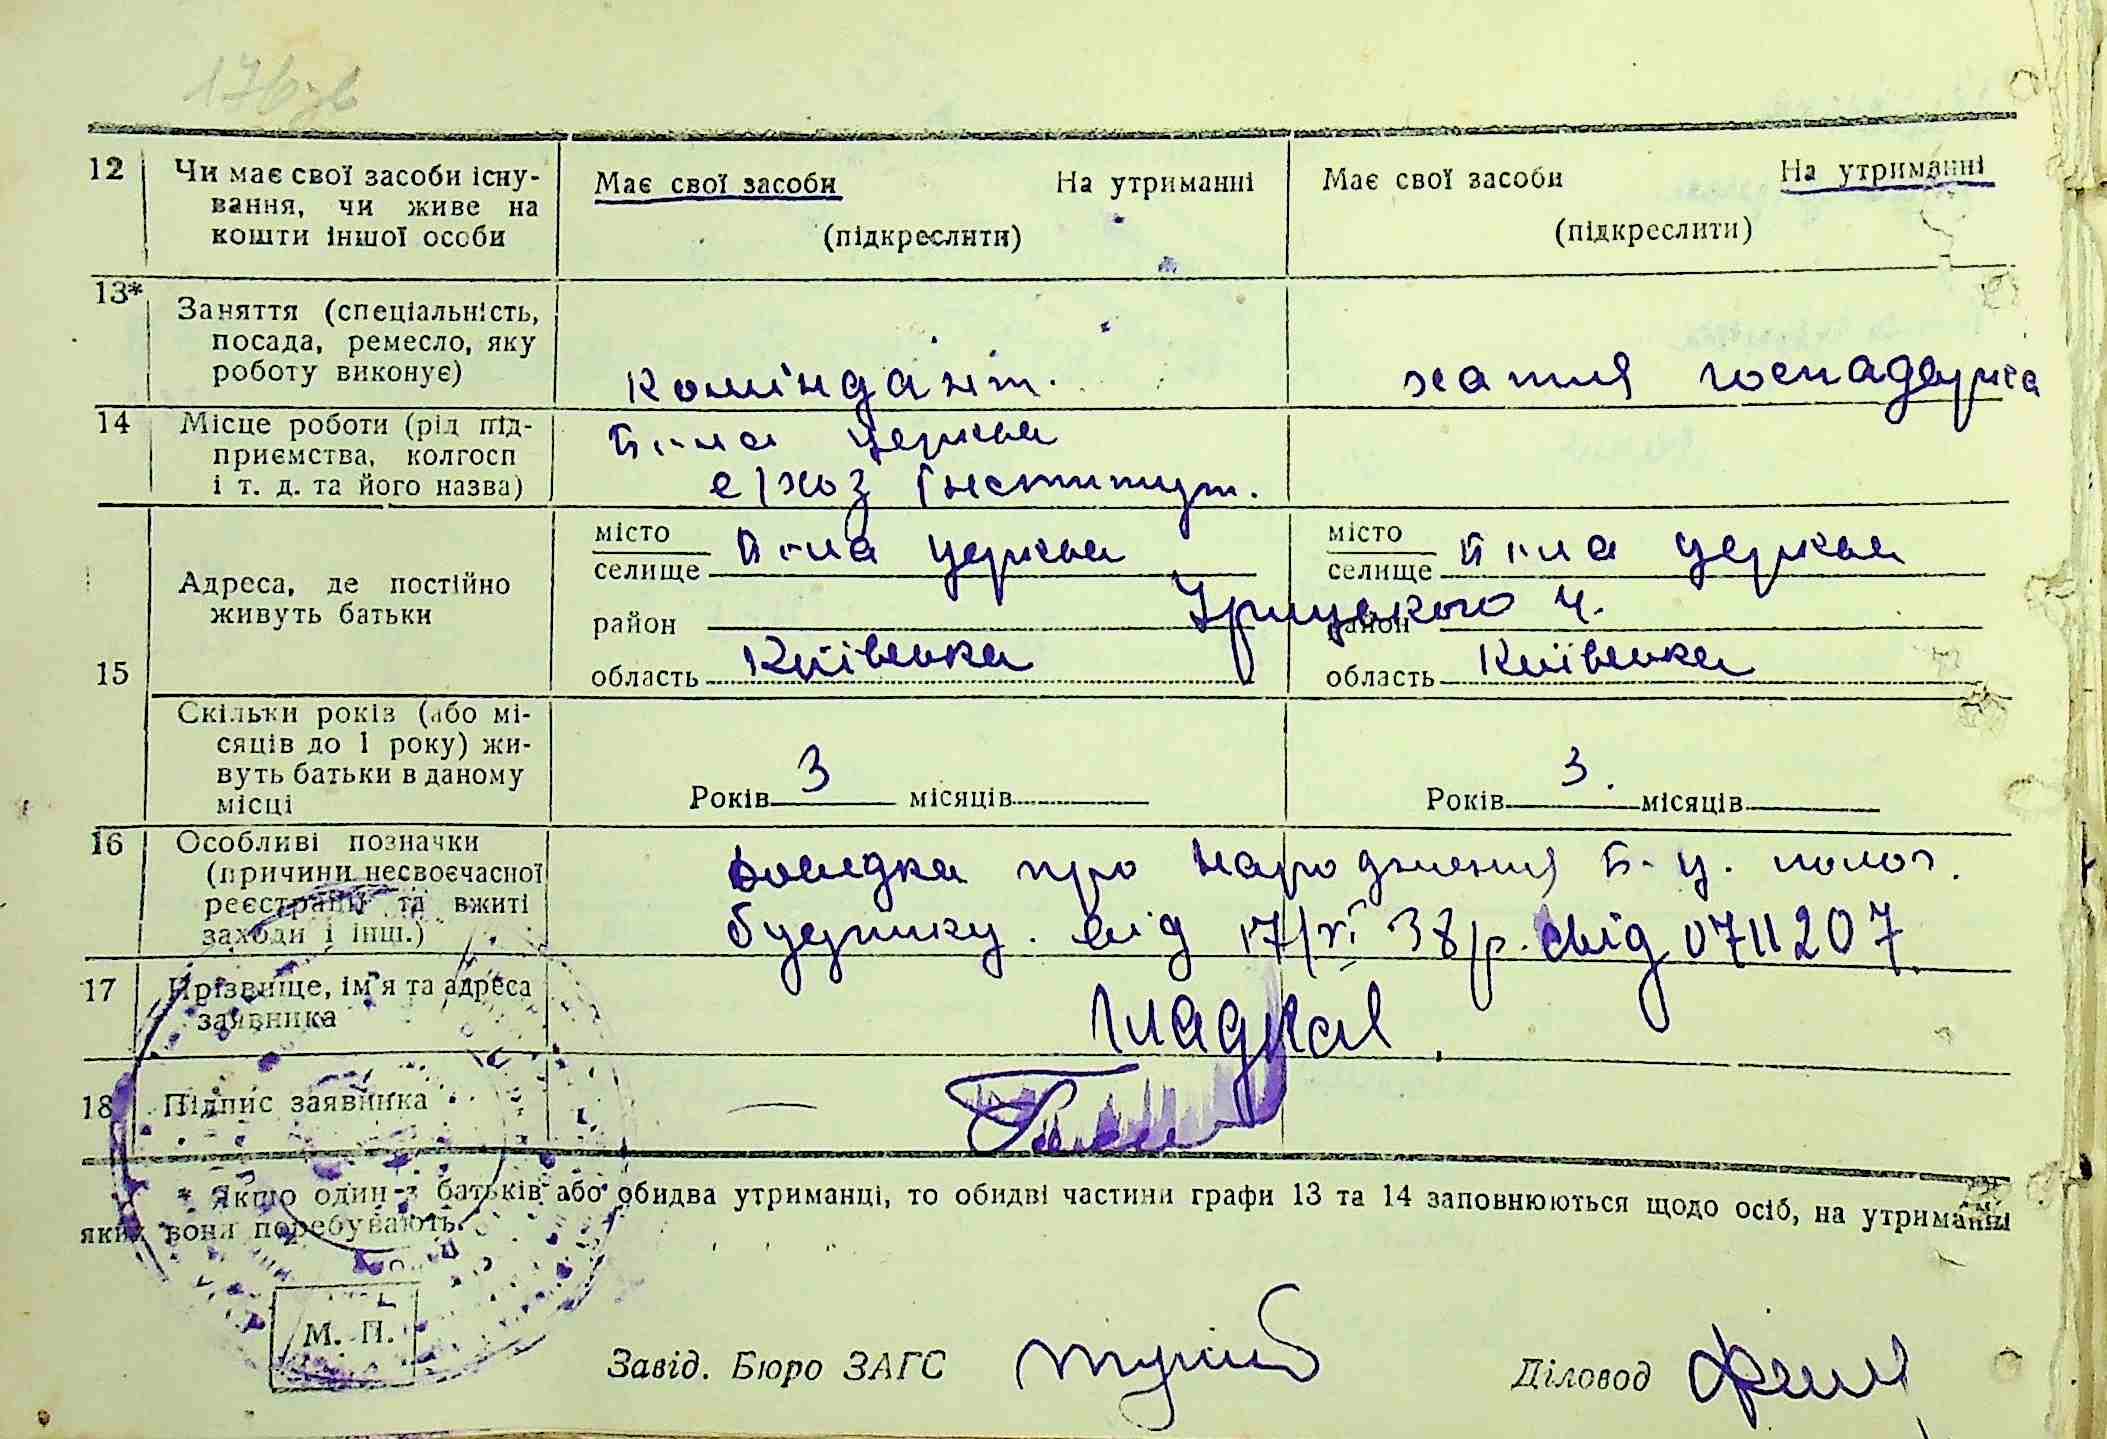 12 Чи має свої засоби існу-
вання, чи живе на
кошти іншої особи
Має свої засоби На утриманні
(підкреслити)
Має свої засоби На утриманні
(підкреслити)
13* Заняття (спеціальність,
посада, ремесло, яку
роботу виконує)
коміндант.
хатня господарка
14 Місце роботи (рід під-
приємства, колгосп
і т. д. та його назва)
Біла церква
с/хоз Інститут.
15 Адреса, де постійно
живуть батьки
місто
селище Біла церква
район
область Київська
місто
селище Біла церква
Урицького 4.
район
область Київська
Скільки років (або мі-
сяців до 1 року) жи-
вуть батьки в даному
місці
Років 3 місяців
Років 3. місяців
16 Особливі позначки
(причини несвоєчасної
реєстрації та вжиті
заходи і інш.)
довидка про народження Б-Ц. полог.
будинку. від 17/VI 38 р. свід 0711207
17 Прізвище, ім'я та адреса
заявника
Гладкая
18 Підпис заявника
* Якщо один з батьків або обидва утриманці, то обидві частини графи 13 та 14 заповнюються щодо осіб, на утриманні
яких вони перебувають.
М. П.
Завід. Бюро ЗАГС
Діловод